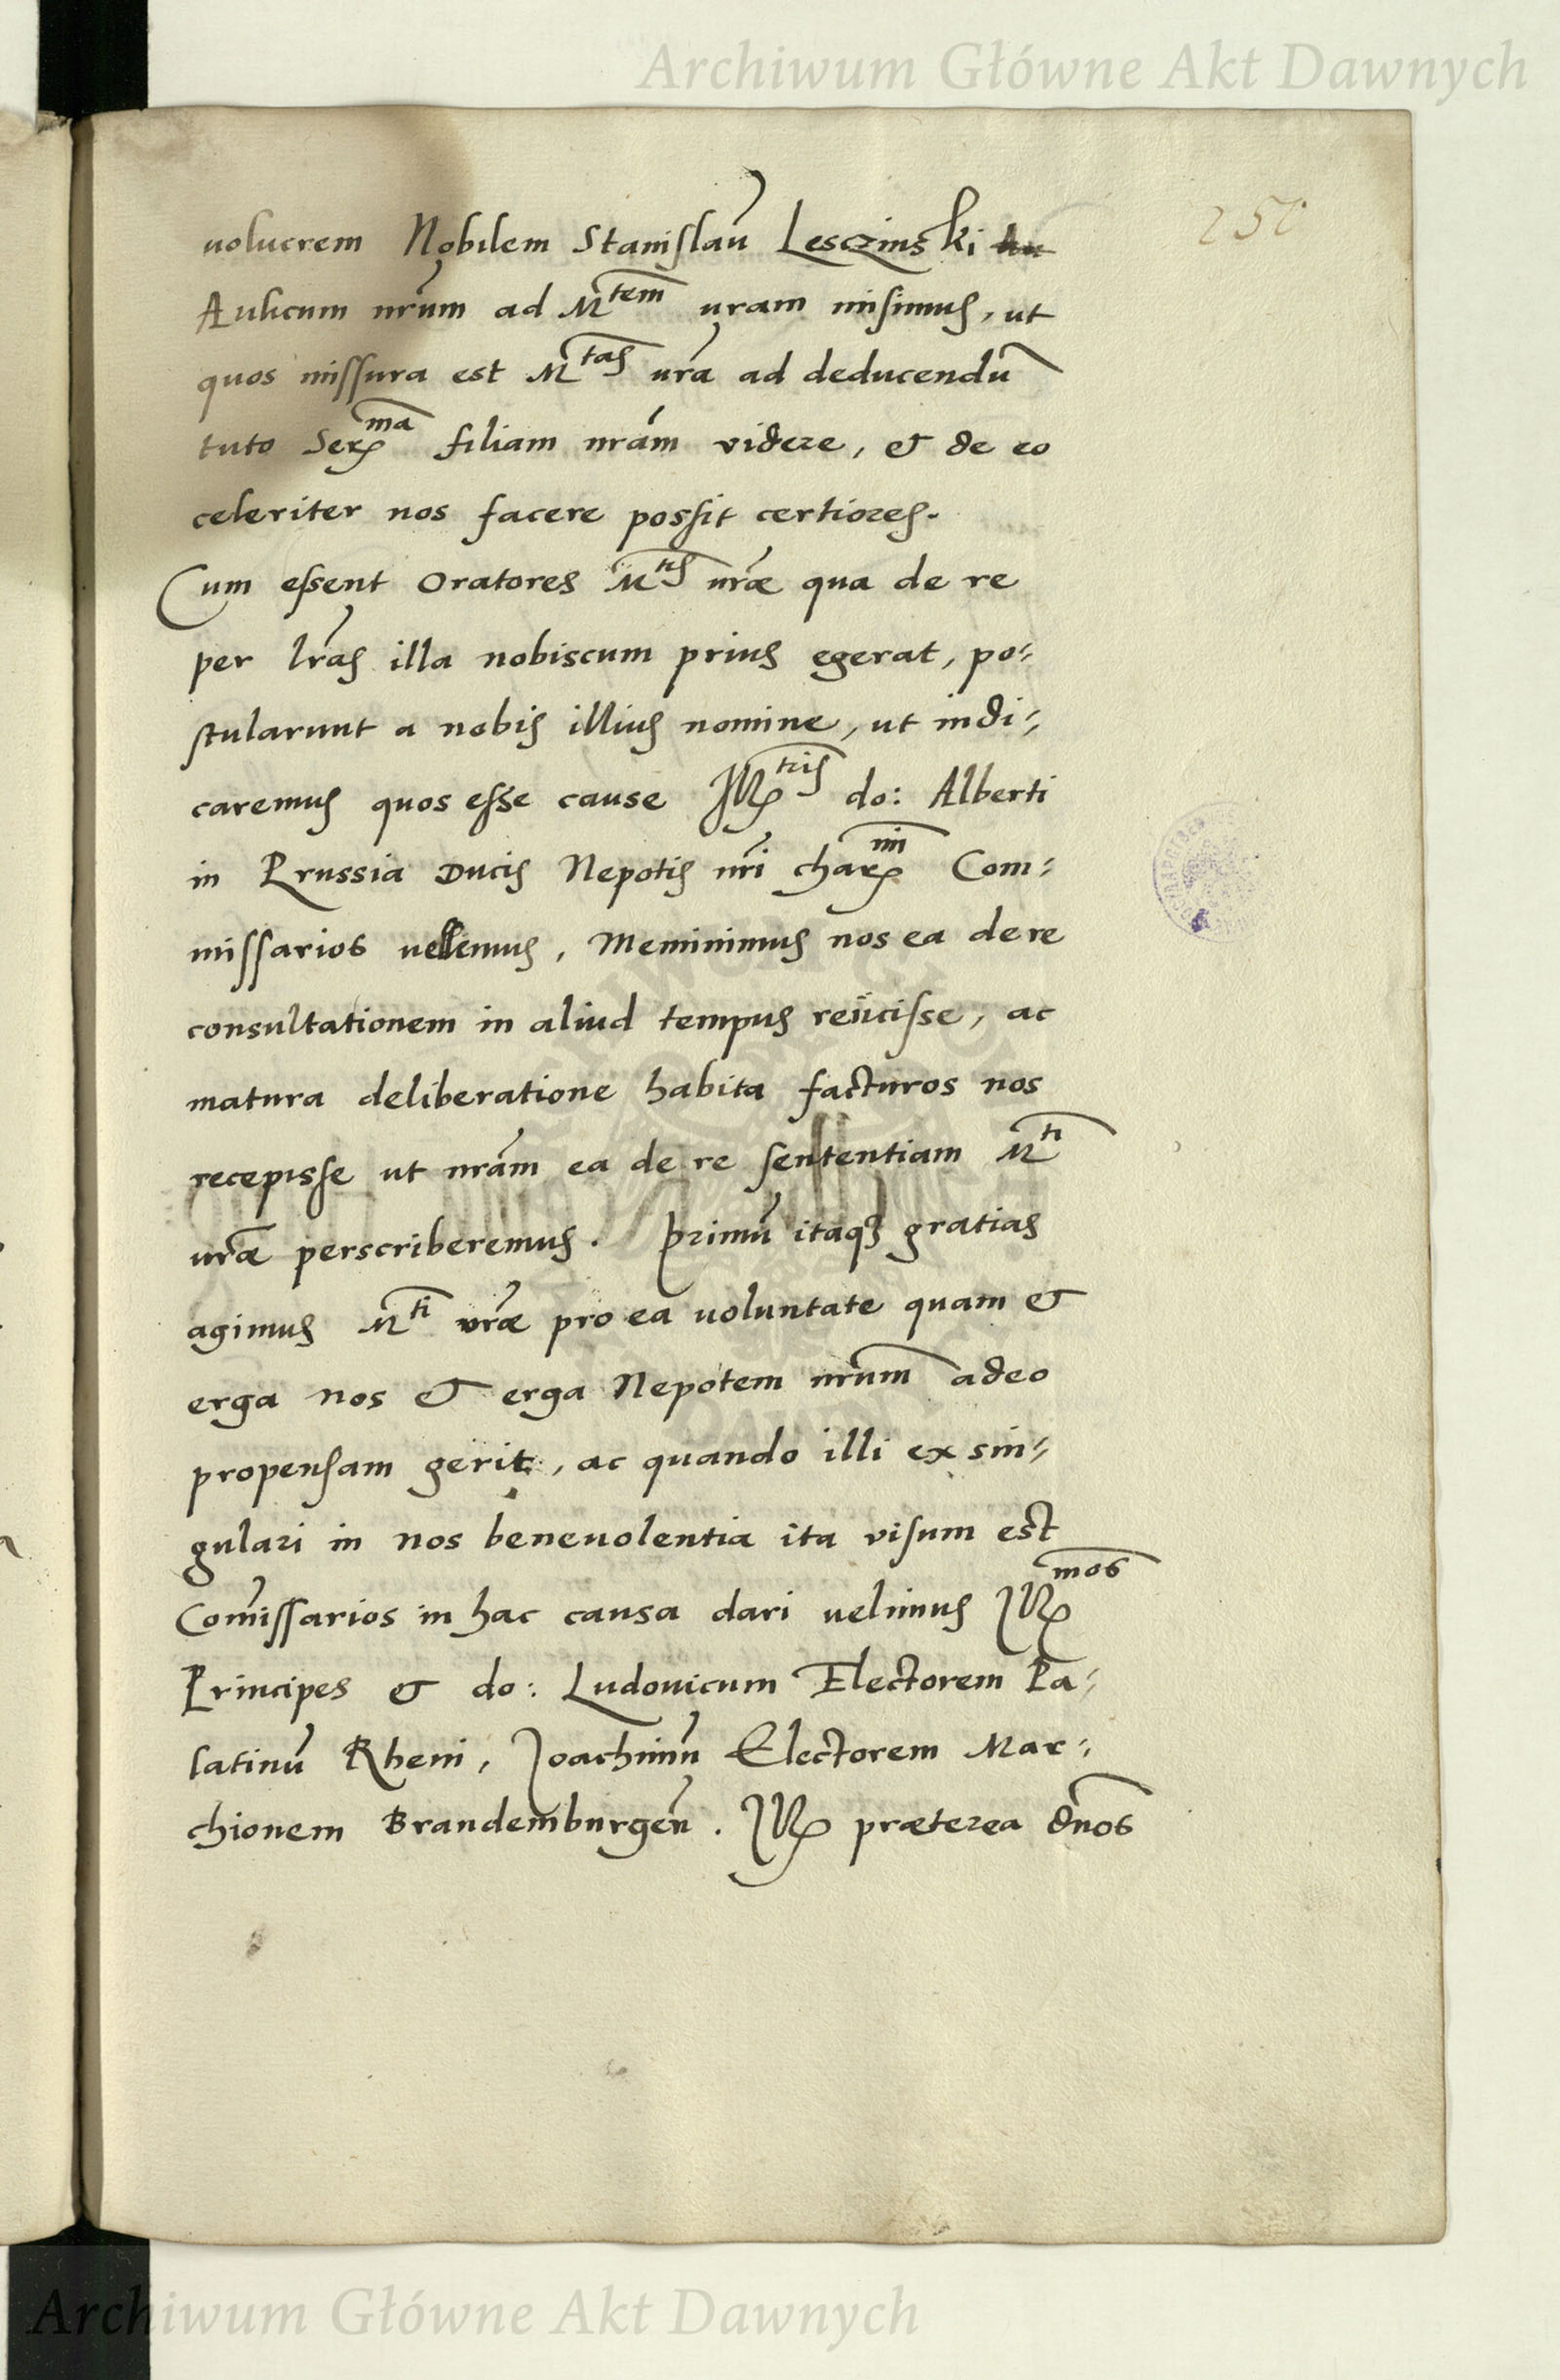 Archiwum Główne Akt Dawnych
250
uolucrem Nobilem Stanislaū Lesczinski
Aulicum nrum ad Mtem uram misimus, ut
quos missura est Mtas ura ad deducendū
tuto Serma filiam nram videre, & de eo
celeriter nos facere possit certiores.
Cum essent Oratores Mtis uræ qua de re
per lras illa nobiscum prius egerat, po-
stularunt a nobis illius nomine, ut indi-
caremus quos esse cause Illtris do: Alberti
in Prussia Ducis Nepotis nri charmi Com-
missarios uellemus, Meminimus nos ea de re
consultationem in aliud tempus reiicisse, ac
matura deliberatione habita facturos nos
recepisse ut nram ea de re sententiam Mti
uræ perscriberemus. Primū itaq3 gratias
agimus Mti vræ pro ea uoluntate quam &
erga nos & erga Nepotem nrum adeo
propensam gerit, ac quando illi ex sin-
gulari in nos beneuolentia ita visum est
Comissarios in hac causa dari uelimus Illmos
Principes & do: Ludouicum Electorem Pa-
latinū Rheni, Joachimū Electorem Mar-
chionem Brandemburgen̄. Ill præterea dnos
Archiwum Główne Akt Dawnych